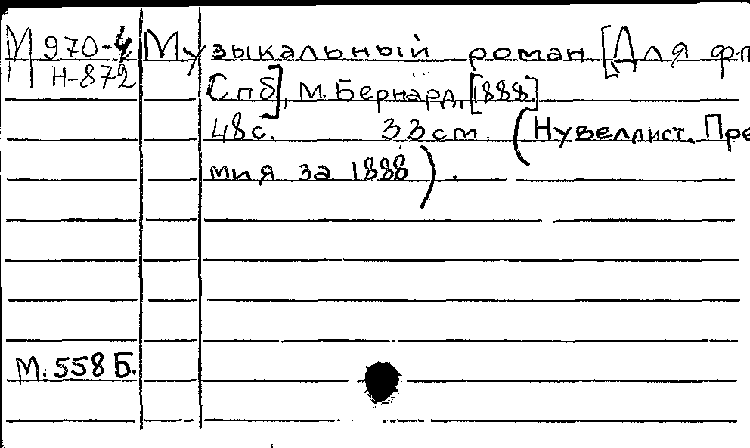 М 970-4 Музыкальный роман [Для фп
Н-872 Спб], М. Бернард, [1888]
48с. 33см. (Нувеллист. Пре
мия за 1888).
М. 558 Б.